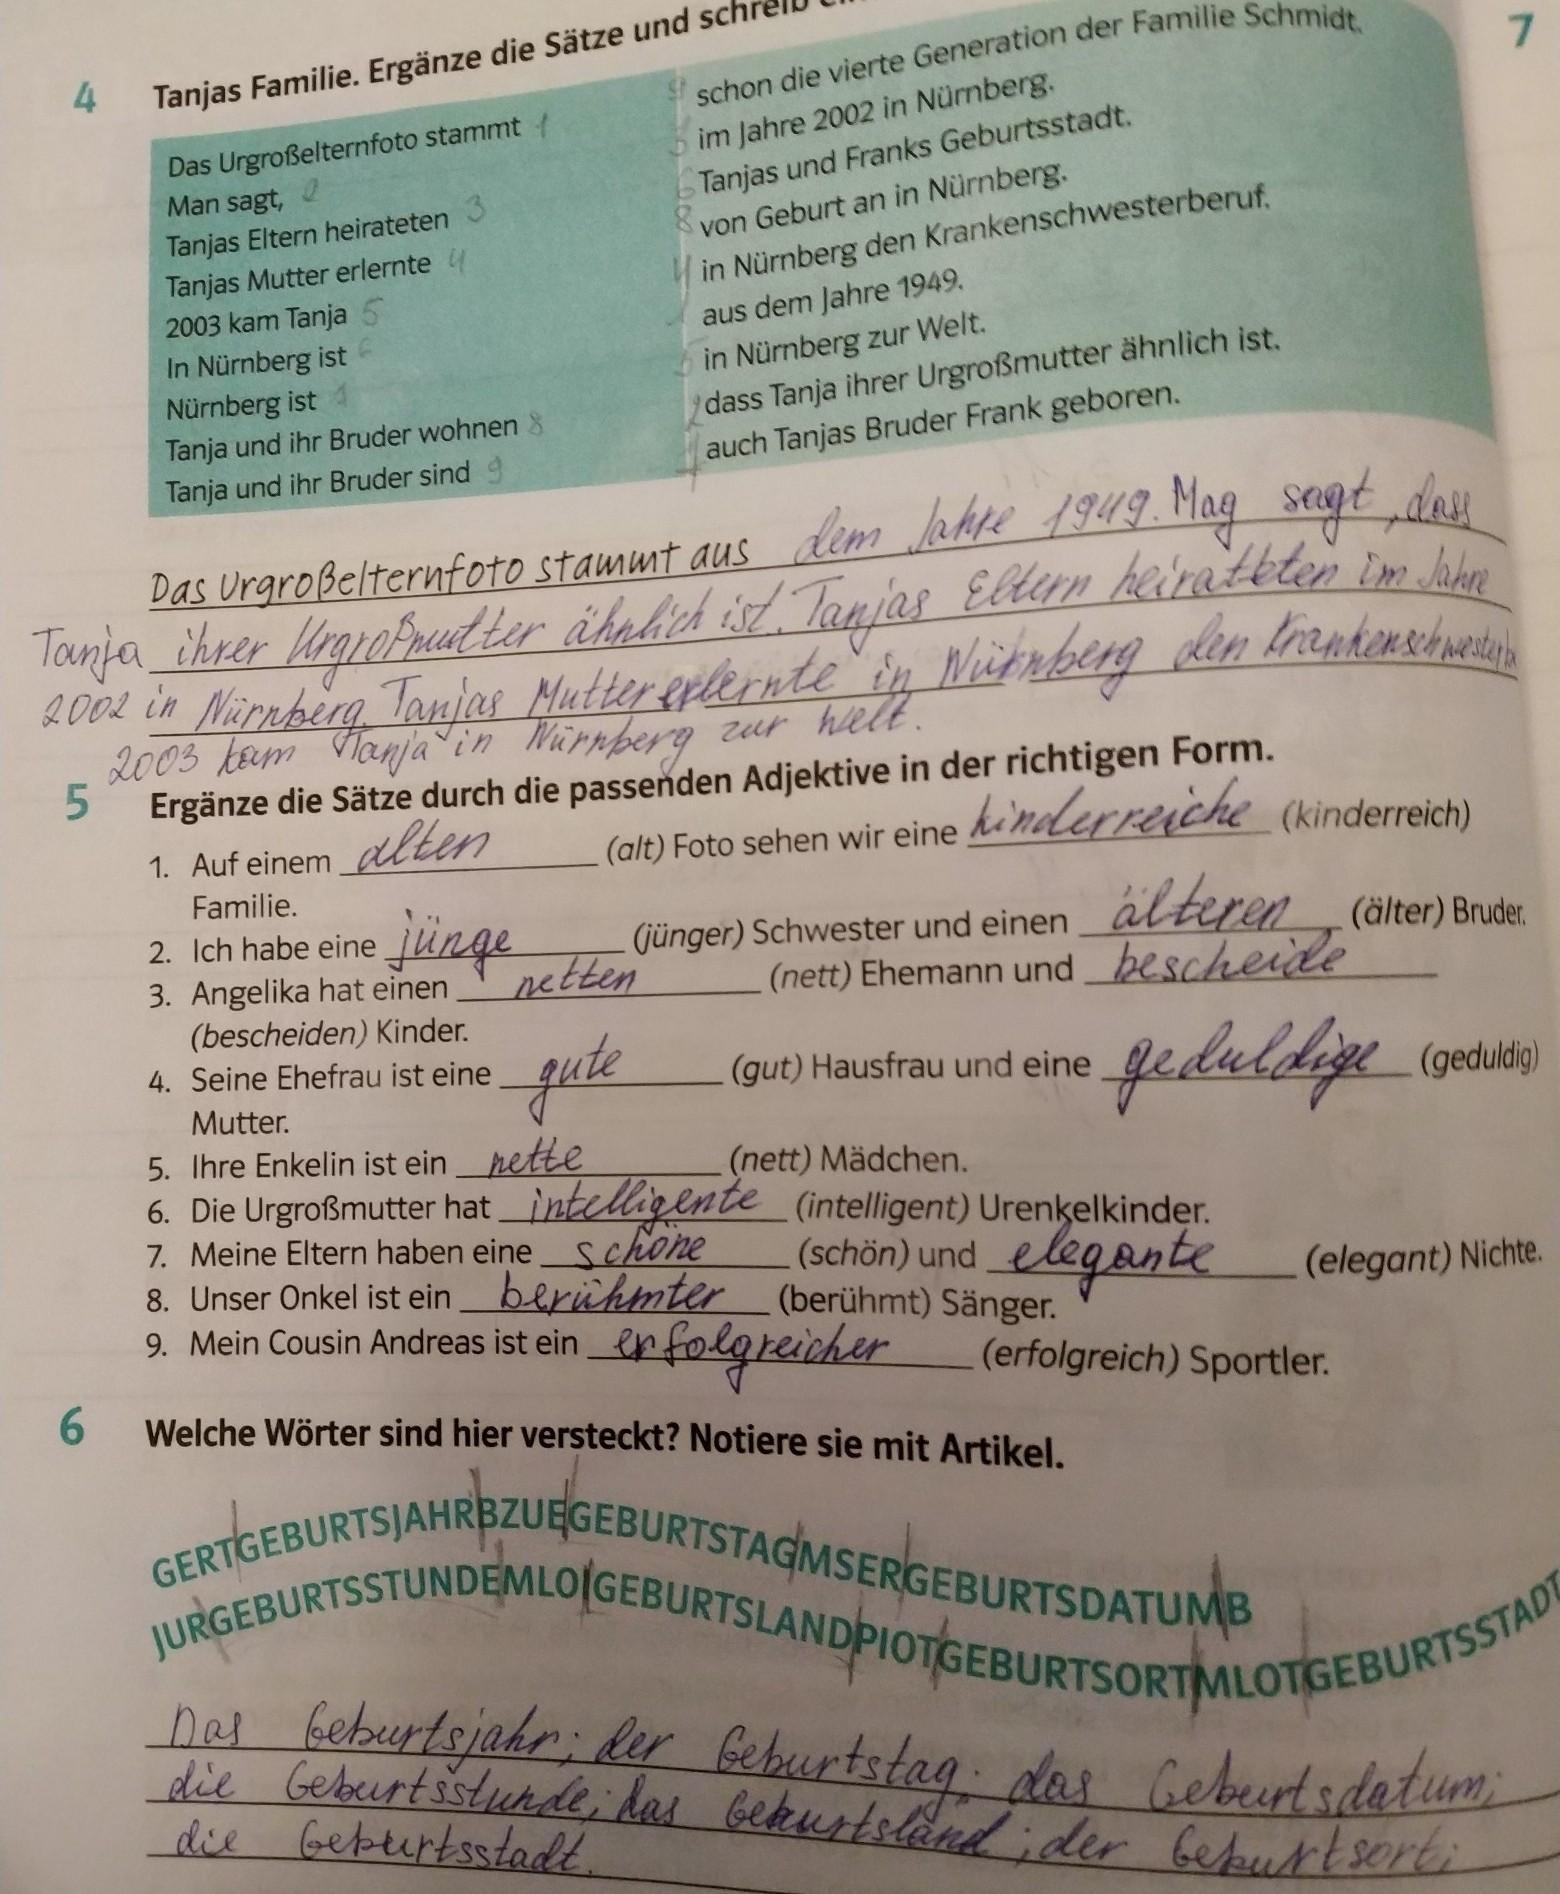 7
4 Tanjas Familie. Ergänze die Sätze und schreib
Das Urgroßelternfoto stammt 1
Man sagt, 2
Tanjas Eltern heirateten 3
Tanjas Mutter erlernte 4
2003 kam Tanja 5
In Nürnberg ist 6
Nürnberg ist
Tanja und ihr Bruder wohnen 8
Tanja und ihr Bruder sind 9
9 schon die vierte Generation der Familie Schmidt.
3 im Jahre 2002 in Nürnberg.
6 Tanjas und Franks Geburtsstadt.
8 von Geburt an in Nürnberg.
4 in Nürnberg den Krankenschwesterberuf.
1 aus dem Jahre 1949.
5 in Nürnberg zur Welt.
2 dass Tanja ihrer Urgroßmutter ähnlich ist.
auch Tanjas Bruder Frank geboren.
Das Urgroßelternfoto stammt aus dem Jahre 1949. Mag sagt, dass
Tanja ihrer Urgroßmutter ähnlich ist. Tanjas Eltern heiratteten im Jahre
2002 in Nürnberg. Tanjas Mutter erlernte in Nürnberg den
2003 kam Tanja in Nürnberg zur Welt.
5 Ergänze die Sätze durch die passenden Adjektive in der richtigen Form.
1. Auf einem alten (alt) Foto sehen wir eine kinderreiche (kinderreich)
Familie.
2. Ich habe eine jünge (jünger) Schwester und einen älteren (älter) Bruder.
3. Angelika hat einen netten (nett) Ehemann und bescheide
(bescheiden) Kinder.
4. Seine Ehefrau ist eine gute (gut) Hausfrau und eine geduldige (geduldig)
Mutter.
5. Ihre Enkelin ist ein nette (nett) Mädchen.
6. Die Urgroßmutter hat intelligente (intelligent) Urenkelkinder.
7. Meine Eltern haben eine schöne (schön) und elegante (elegant) Nichte.
8. Unser Onkel ist ein berühmter (berühmt) Sänger.
9. Mein Cousin Andreas ist ein erfolgreicher (erfolgreich) Sportler.
6 Welche Wörter sind hier versteckt? Notiere sie mit Artikel.
GERTGEBURTSJAHRBZUEGEBURTSTAGMSERGEBURTSDATUMB
JURGEBURTSSTUNDEMLOIGEBURTSLANDPIOTGEBURTSORTMLOTGEBURTSSTADT
Das Geburtsjahr; der Geburtstag; das Geburtsdatum;
die Geburtsstunde; das Geburtsland; der Geburtsort;
die Geburtsstadt.